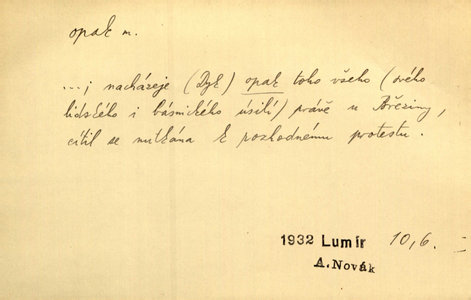 opak m.
...; nacházeje (Dyk) opak toho všeho (svého
lidského i básnického úsilí) právě u Březiny,
cítil se nutkána k rozhodnému protestu.
1932 Lumír 10,6.
A.Novák